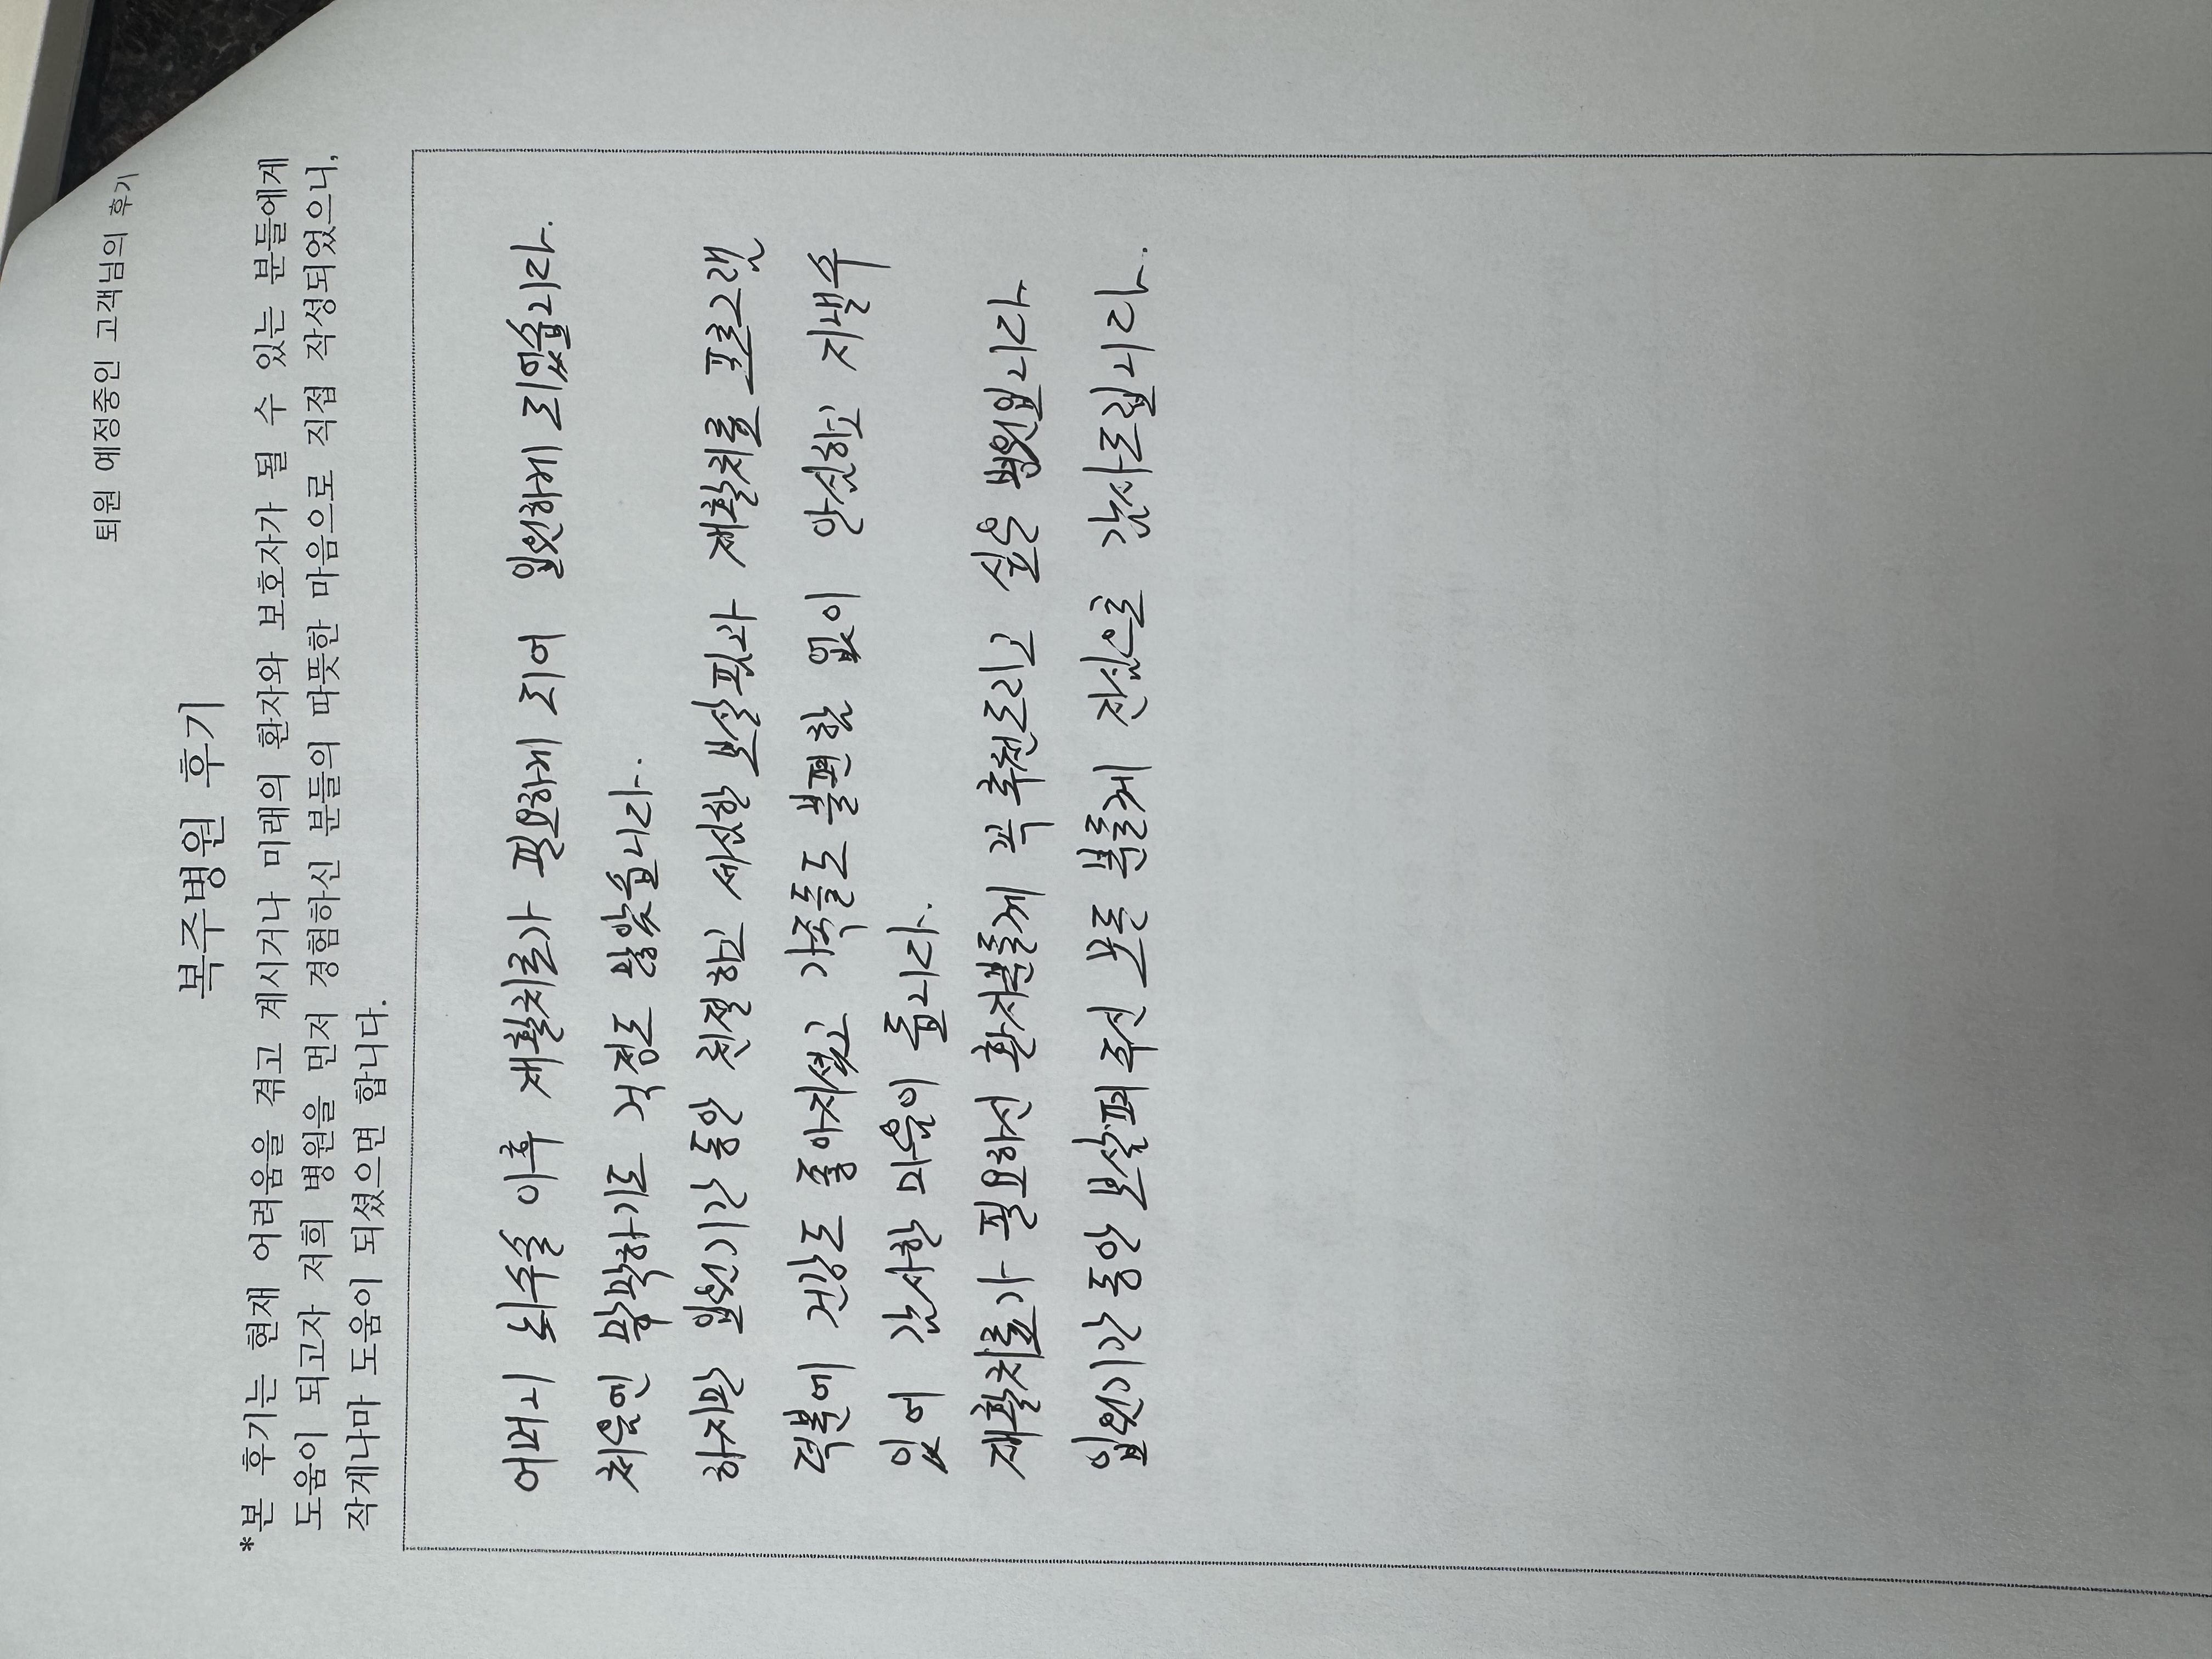 퇴원 예정중인 고객님의 후기
복주병원 후기
*본 후기는 현재 어려움을 겪고 계시거나 미래의 환자와 보호자가 될 수 있는 분들에게
도움이 되고자 저희 병원을 먼저 경험하신 분들의 따뜻한 마음으로 직접 작성되었으니,
작게나마 도움이 되셨으면 합니다.
어머니 뇌수술 이후 재활치료가 필요하게 되어 입원하게 되었습니다.
처음엔 막막하기도 걱정도 많았습니다.
하지만 입원기간 동안 친절하고 세심한 보살핌과 재활치료 프로그램
덕분에 건강도 좋아지셨고 가족들도 불편함 없이 안심하고 지낼수
있어 감사한 마음이 듭니다.
재활치료가 필요하신 환자분들께 꼭 추천드리고 싶은 병원입니다
입원기간 동안 보살펴주신 모든 분들께 진심으로 감사드립니다.